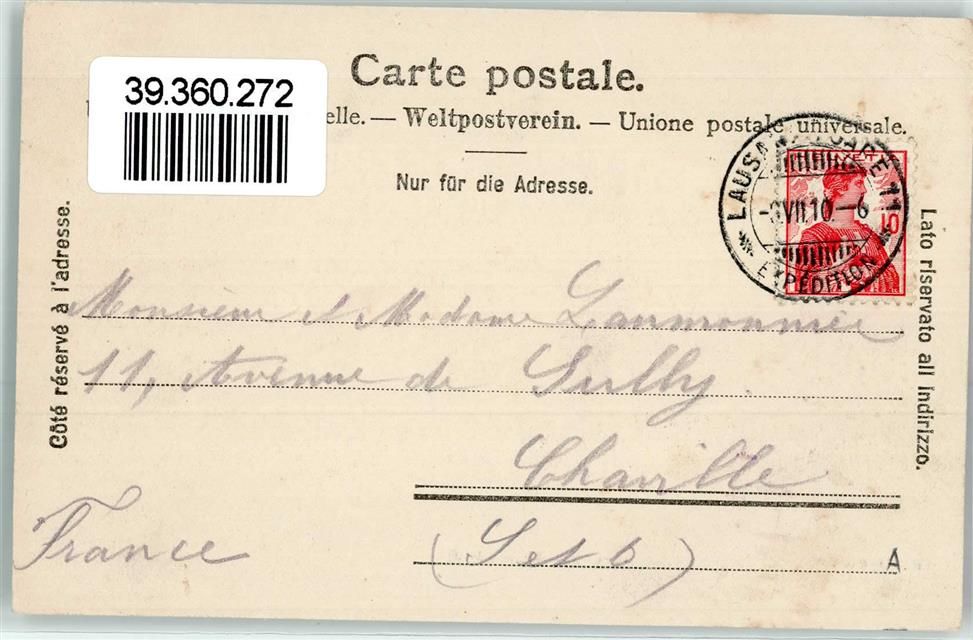 39.360.272
Carte postale.
elle. — Weltpostverein. — Unione postale universale.
Nur für die Adresse.
LAUSANNE GARE 11
VII.10.-6
EXPÉDITION
10
Côté réservé à l'adresse.
Lato riservato all indirizzo.
Monsieur et Madame Laumonnier
11, Avenue de Sully.
Chaville
France (S et O)
A